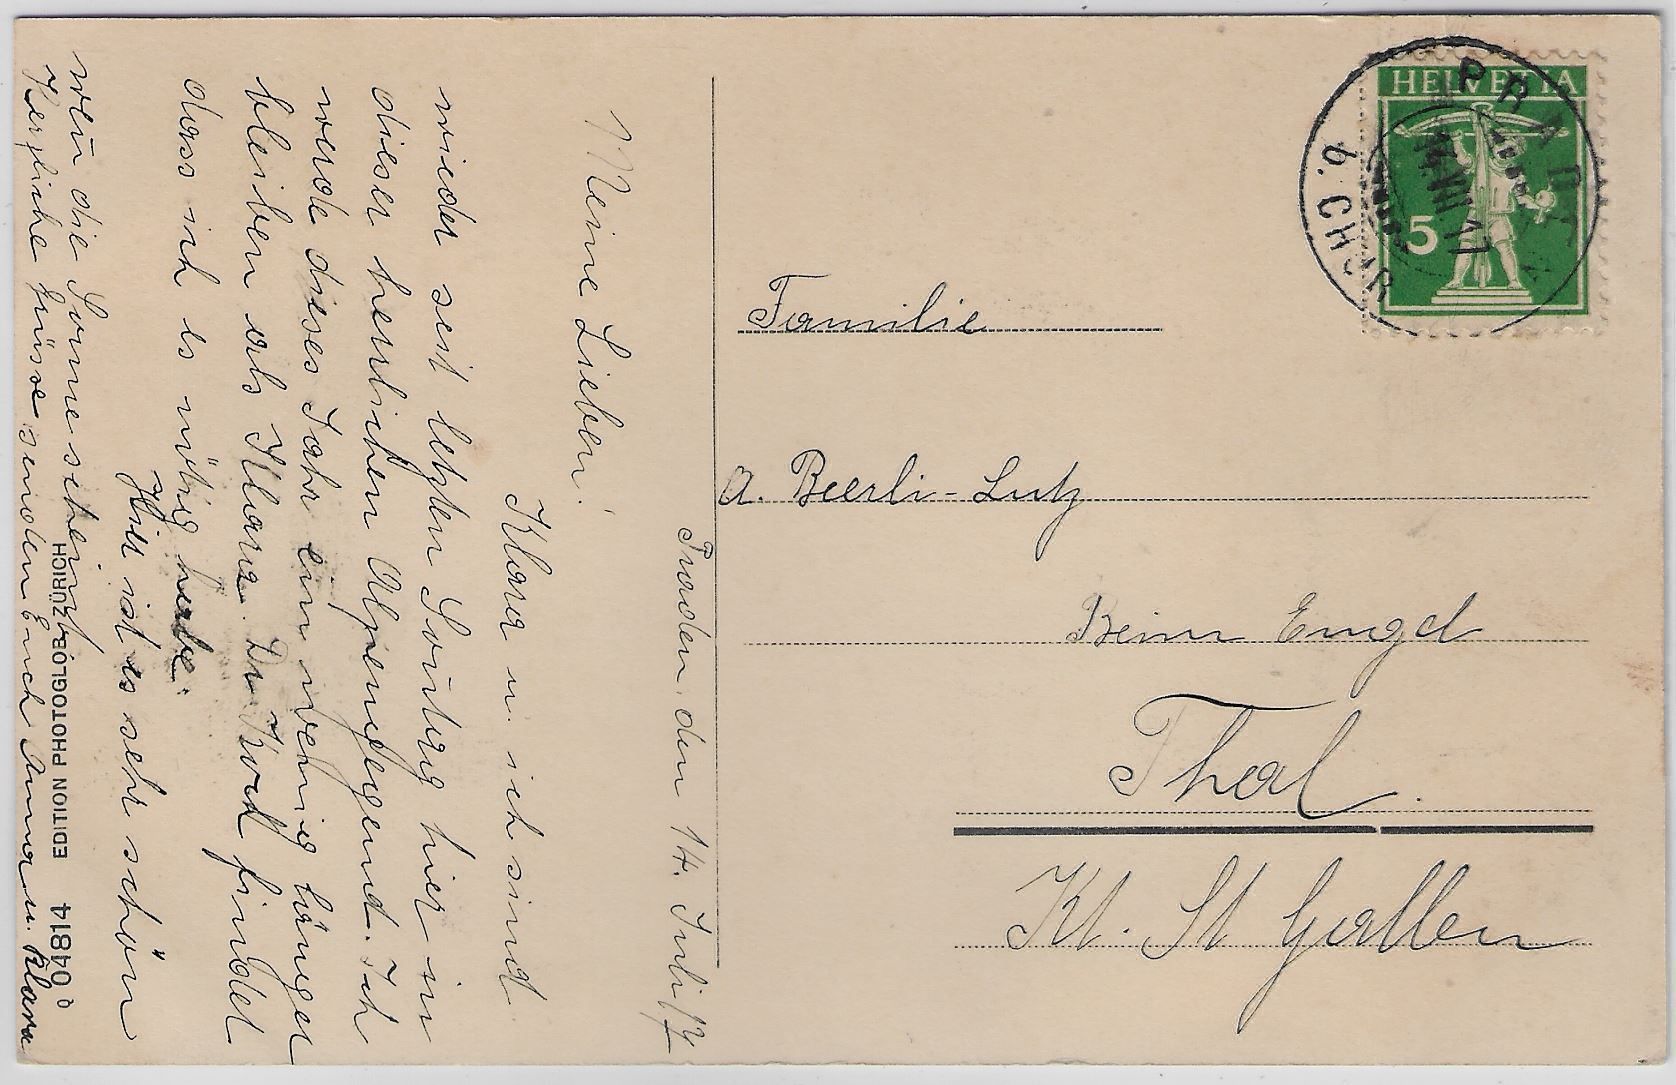 Praden, den 14. Juli 17
Meine Lieben!
Klara u. ich sind
wieder seit letzten Sontag hier in
dieser herrlichen Alpengegend. Ich
werde dieses Jahr ein wenig länger
bleiben als Klara. Dr. Koch findet
dass ich es nötig habe.
Hier ist es sehr schön
wen die Sonne scheint.
Herzliche Grüsse senden Euch Anna u. Klara
Q 04814 EDITION PHOTOGLOB ZÜRICH
HELVETIA
5
PRADEN
14.VII.17
b. CHUR
Familie
A. Beerli-Lutz
Beim Engel
Thal.
Kt. St Gallen